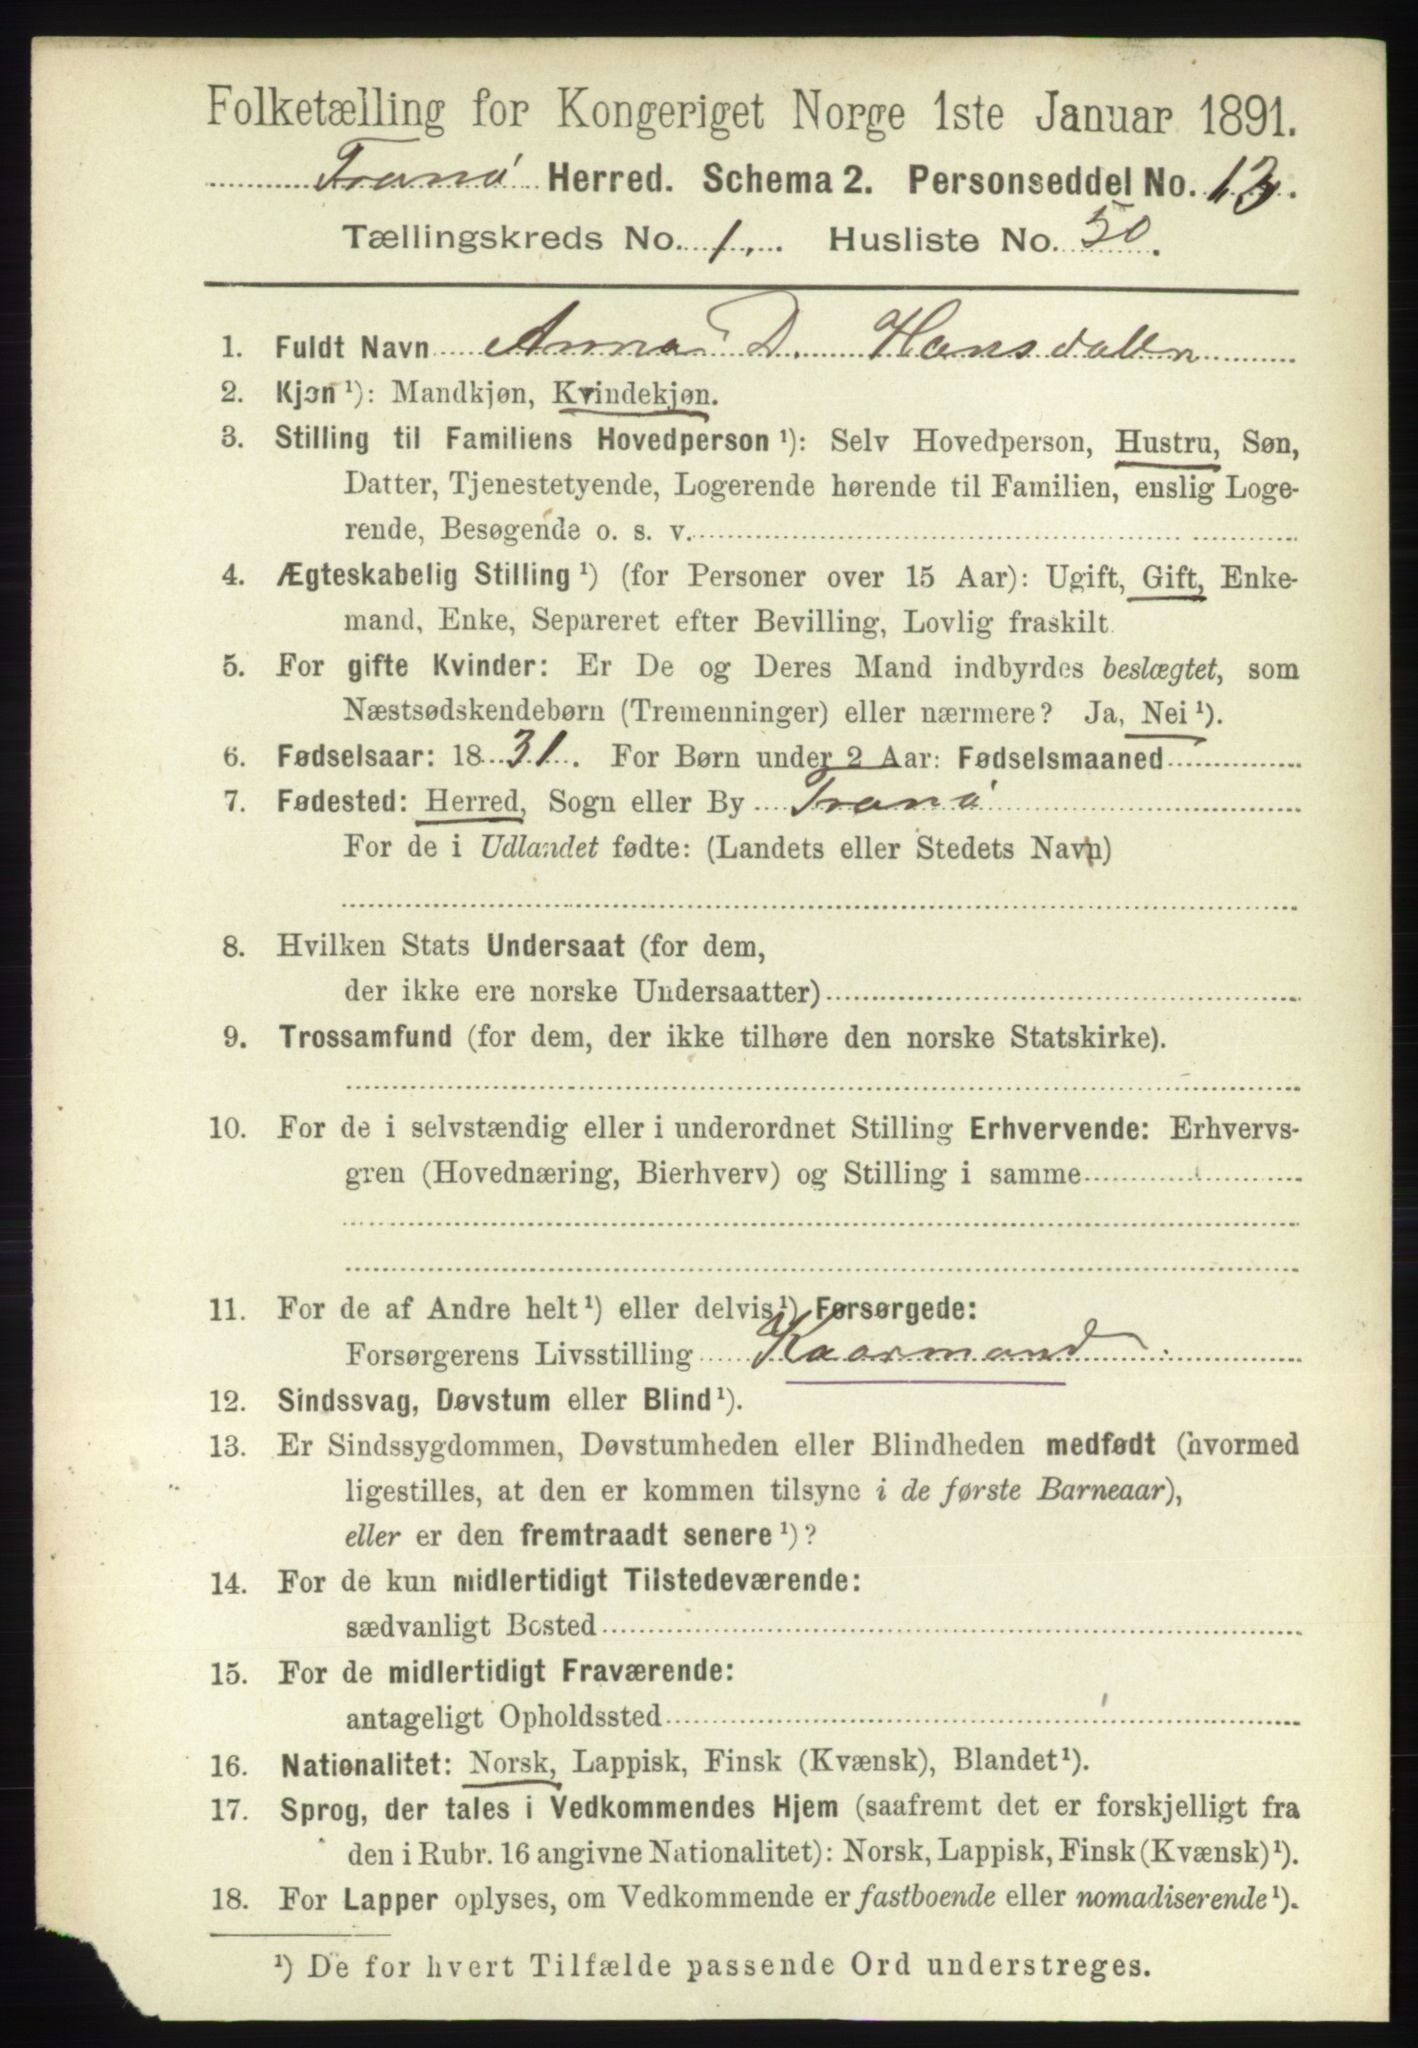 Folketælling for Kongeriget Norge 1ste Januar 1891.
Tranø Herred. Schema 2. Personseddel No. 13.
Tællingskreds No. 1. Husliste No. 50.
1. Fuldt Navn Anna D. Hansdatter
2. Kjøn ¹): Mandkjøn, Kvindekjøn.
3. Stilling til Familiens Hovedperson ¹): Selv Hovedperson, Hustru, Søn,
Datter, Tjenestetyende, Logerende hørende til Familien, enslig Loge-
rende, Besøgende o. s. v.
4. Ægteskabelig Stilling ¹) (for Personer over 15 Aar): Ugift, Gift, Enke-
mand, Enke, Separeret efter Bevilling, Lovlig fraskilt.
5. For gifte Kvinder: Er De og Deres Mand indbyrdes beslægtet, som
Næstsødskendebørn (Tremenninger) eller nærmere? Ja, Nei ¹).
6. Fødselsaar: 1831. For Børn under 2 Aar: Fødselsmaaned
7. Fødested: Herred, Sogn eller By Tranø
For de i Udlandet fødte: (Landets eller Stedets Navn)
8. Hvilken Stats Undersaat (for dem,
der ikke ere norske Undersaatter)
9. Trossamfund (for dem, der ikke tilhøre den norske Statskirke).
10. For de i selvstændig eller i underordnet Stilling Erhvervende: Erhvervs-
gren (Hovednæring, Bierhverv) og Stilling i samme
11. For de af Andre helt ¹) eller delvis ¹) Forsørgede:
Forsørgerens Livsstilling Kaarmand
12. Sindssvag, Døvstum eller Blind ¹).
13. Er Sindssygdommen, Døvstumheden eller Blindheden medfødt (hvormed
ligestilles, at den er kommen tilsyne i de første Barneaar),
eller er den fremtraadt senere ¹)?
14. For de kun midlertidigt Tilstedeværende:
sædvanligt Bosted
15. For de midlertidigt Fraværende:
antageligt Opholdssted
16. Nationalitet: Norsk, Lappisk, Finsk (Kvænsk), Blandet ¹).
17. Sprog, der tales i Vedkommendes Hjem (saafremt det er forskjelligt fra
den i Rubr. 16 angivne Nationalitet): Norsk, Lappisk, Finsk (Kvænsk) ¹).
18. For Lapper oplyses, om Vedkommende er fastboende eller nomadiserende ¹).
¹) De for hvert Tilfælde passende Ord understreges.